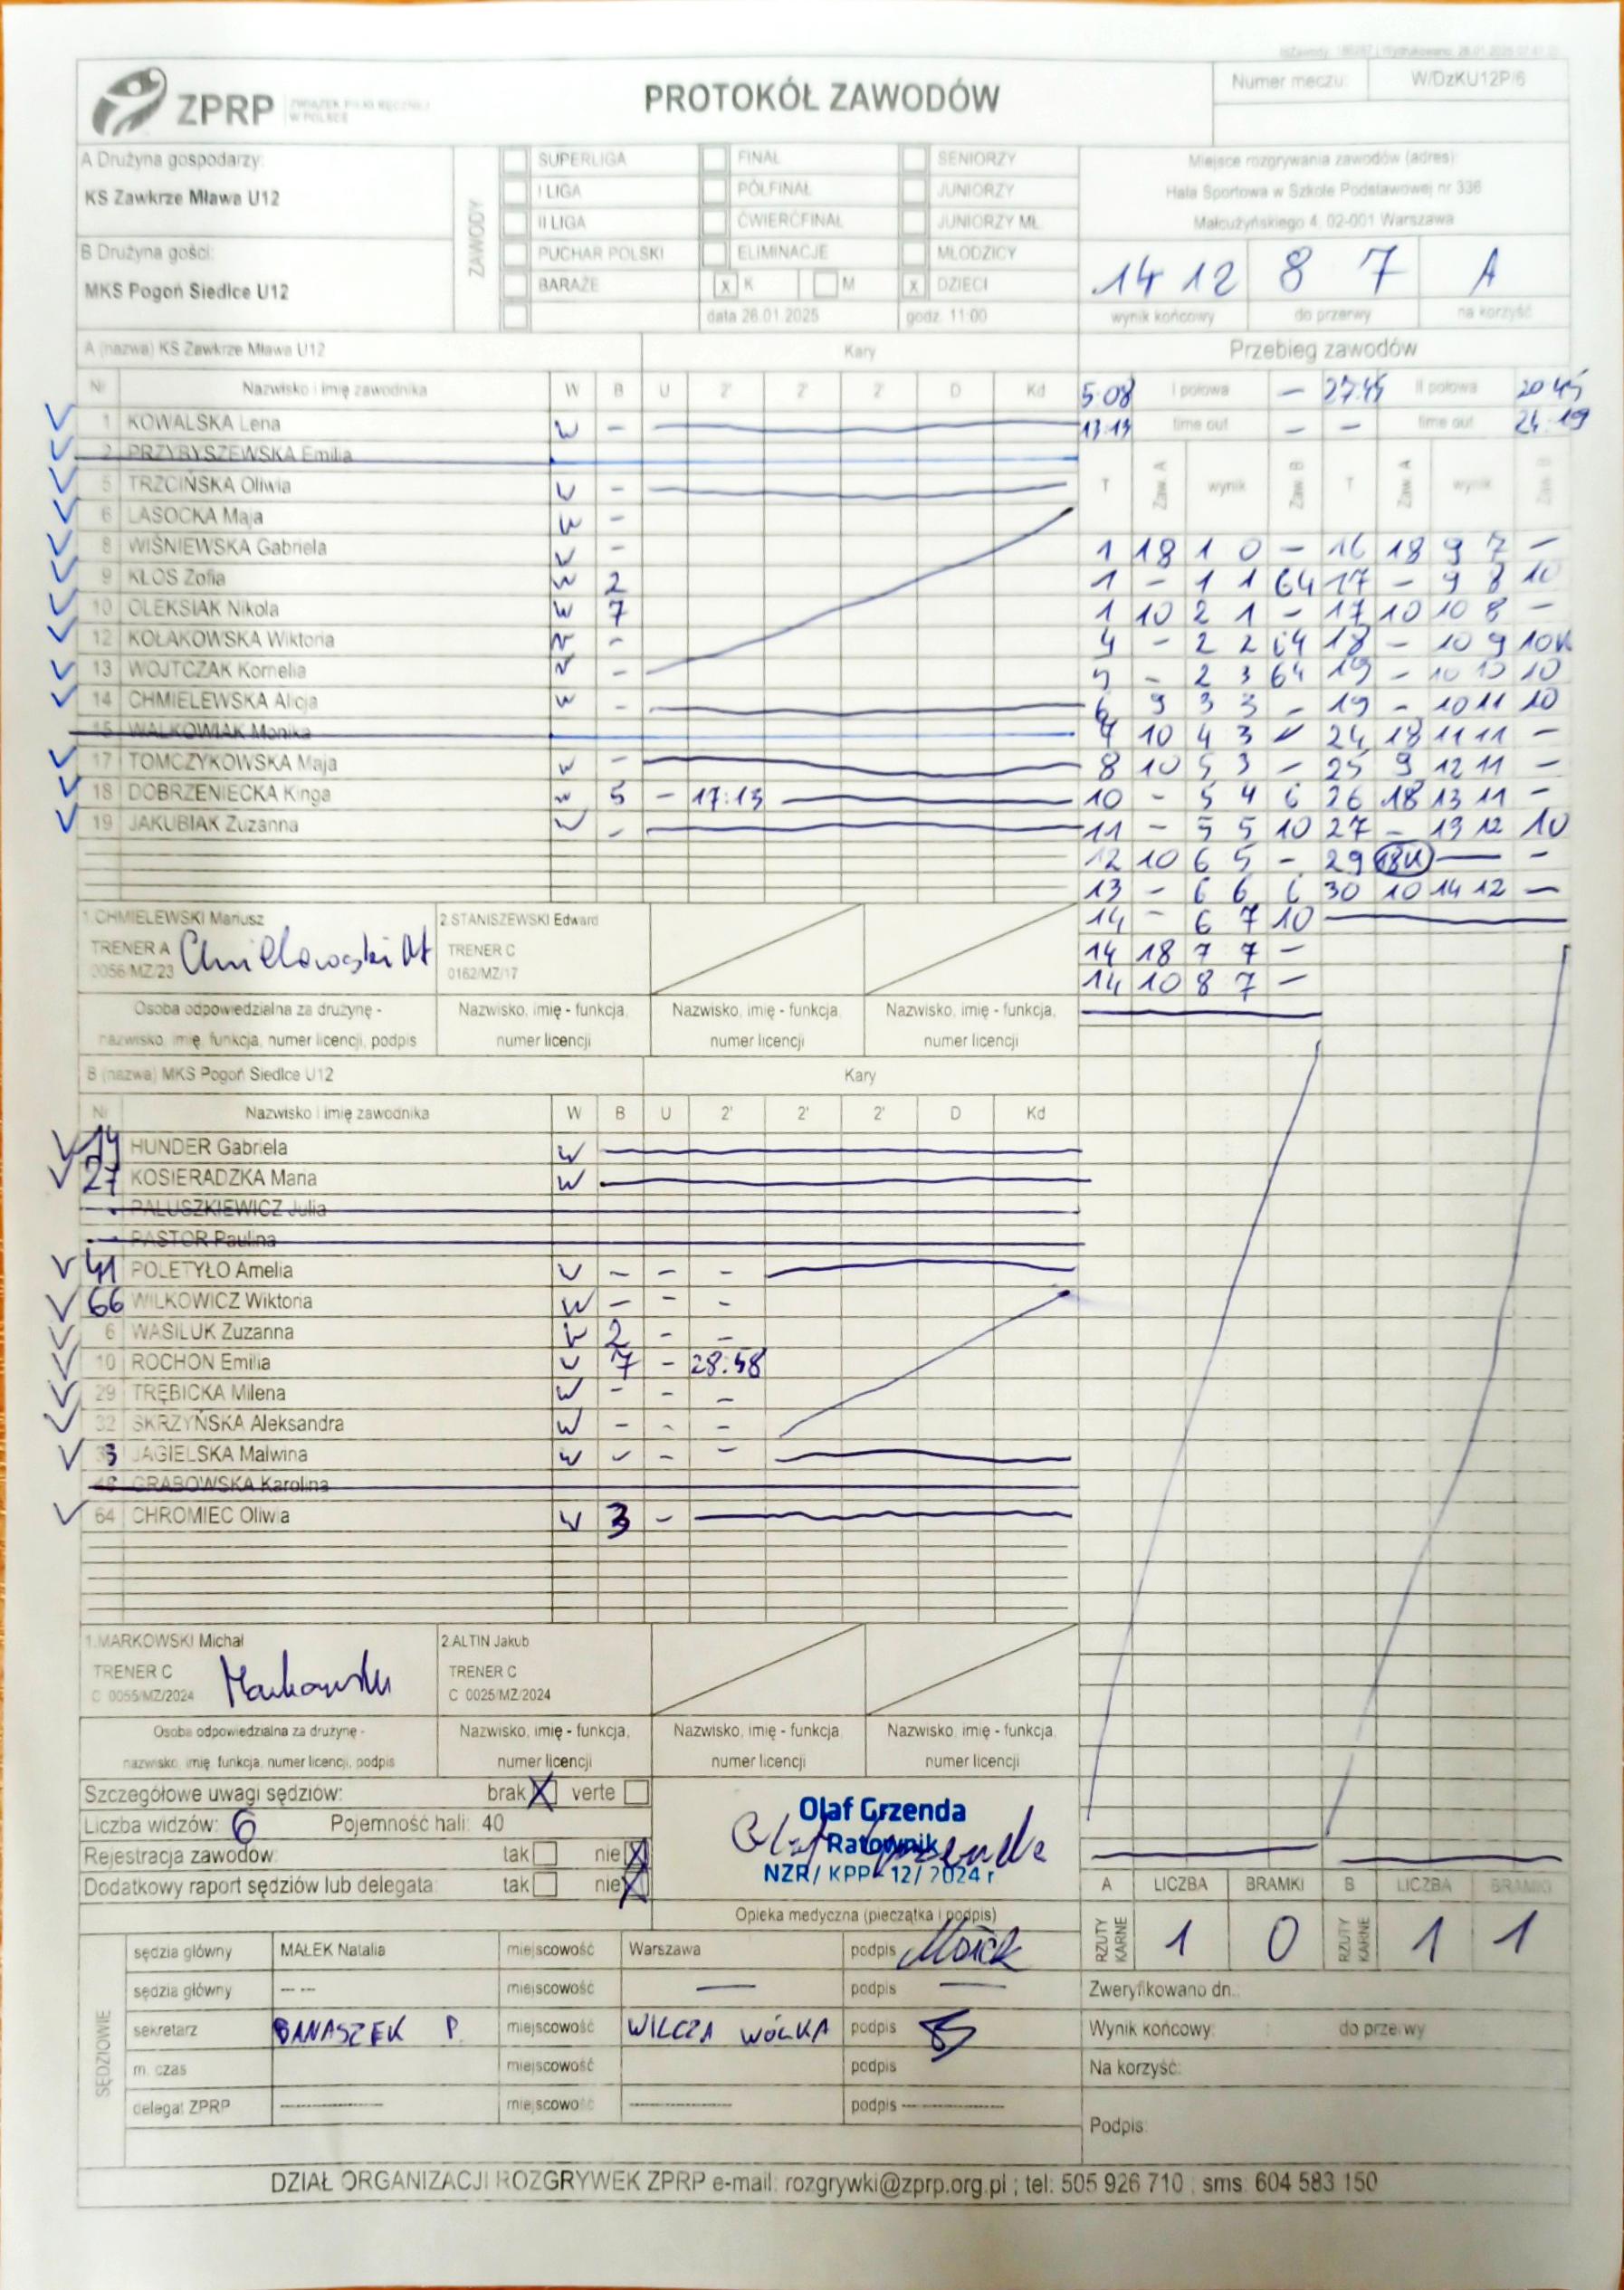 ZPRP ZWIĄZEK PIŁKI RĘCZNEJ W POLSCE
PROTOKÓŁ ZAWODÓW
Numer meczu: W/DzKU12P/6
A Drużyna gospodarzy:
KS Zawkrze Mława U12
B Drużyna gości:
MKS Pogoń Siedlce U12
ZAWODY
SUPERLIGA FINAŁ SENIORZY
I LIGA PÓŁFINAŁ JUNIORZY
II LIGA ĆWIERĆFINAŁ JUNIORZY MŁ.
PUCHAR POLSKI ELIMINACJE MŁODZICY
BARAŻE x K M x DZIECI
data 26.01.2025 godz. 11:00
Miejsce rozgrywania zawodów (adres):
Hala Sportowa w Szkole Podstawowej nr 336
Małcużyńskiego 4, 02-001 Warszawa
14 12 8 7 A
wynik końcowy do przerwy na korzyść
A (nazwa) KS Zawkrze Mława U12 Kary
Nr Nazwisko i imię zawodnika W B U 2' 2' 2' D Kd
1 KOWALSKA Lena W -
2 PRZYBYSZEWSKA Emilia
5 TRZCIŃSKA Oliwia W -
6 LASOCKA Maja W -
8 WIŚNIEWSKA Gabriela W -
9 KŁOS Zofia W 2
10 OLEKSIAK Nikola W 7
12 KOŁAKOWSKA Wiktoria W -
13 WOJTCZAK Kornelia W -
14 CHMIELEWSKA Alicja W -
15 WALKOWIAK Monika
17 TOMCZYKOWSKA Maja W -
18 DOBRZENIECKA Kinga W 5 - 17:13
19 JAKUBIAK Zuzanna W -
1.CHMIELEWSKI Mariusz
TRENER A
0056/MZ/23
Chmielewski M
2.STANISZEWSKI Edward
TRENER C
0162/MZ/17
Osoba odpowiedzialna za drużynę -
nazwisko, imię, funkcja, numer licencji, podpis
Nazwisko, imię - funkcja, numer licencji
Nazwisko, imię - funkcja, numer licencji
Nazwisko, imię - funkcja, numer licencji
Przebieg zawodów
5:08 I połowa - 27:45 II połowa 20:45
13:13 time out - - time out 24:19
T Zaw. A wynik Zaw. B T Zaw. A wynik Zaw. B
1 18 1 0 - 16 18 9 7 -
1 - 1 1 64 17 - 9 8 10
1 10 2 1 - 17 10 10 8 -
4 - 2 2 64 18 - 10 9 10K
5 - 2 3 64 19 - 10 10 10
6 9 3 3 - 19 - 10 11 10
7 10 4 3 - 24 18 11 11 -
8 10 5 3 - 25 9 12 11 -
10 - 5 4 6 26 18 13 11 -
11 - 5 5 10 27 - 13 12 10
12 10 6 5 - 29 18K -
13 - 6 6 6 30 10 14 12 -
14 - 6 7 10
14 18 7 7 -
14 10 8 7 -
B (nazwa) MKS Pogoń Siedlce U12 Kary
Nr Nazwisko i imię zawodnika W B U 2' 2' 2' D Kd
14 HUNDER Gabriela W
27 KOSIERADZKA Maria W
PALUSZKIEWICZ Julia
PASTOR Paulina
41 POLETYŁO Amelia W - - -
66 WILKOWICZ Wiktoria W - - -
6 WASILUK Zuzanna W 2 - -
10 ROCHOŃ Emilia W 7 - 28:58
29 TRĘBICKA Milena W - - -
32 SKRZYŃSKA Aleksandra W - - -
33 JAGIELSKA Malwina W - - -
GRABOWSKA Karolina
64 CHROMIEC Oliwia W 3 -
1.MARKOWSKI Michał
TRENER C
C 0055/MZ/2024
Markowski
2.ALTIN Jakub
TRENER C
C 0025/MZ/2024
Osoba odpowiedzialna za drużynę -
nazwisko, imię, funkcja, numer licencji, podpis
Nazwisko, imię - funkcja, numer licencji
Nazwisko, imię - funkcja, numer licencji
Nazwisko, imię - funkcja, numer licencji
Szczegółowe uwagi sędziów: brak X verte
Liczba widzów: 6 Pojemność hali: 40
Rejestracja zawodów: tak nie X
Dodatkowy raport sędziów lub delegata: tak nie X
Olaf Grzenda
Ratownik
NZR/ KPP - 12/ 2024 r
Opieka medyczna (pieczątka i podpis)
A LICZBA BRAMKI B LICZBA BRAMKI
RZUTY KARNE 1 0 RZUTY KARNE 1 1
SĘDZIOWIE
sędzia główny MAŁEK Natalia miejscowość Warszawa podpis Małek
sędzia główny -- -- miejscowość — podpis —
sekretarz BANASZEK P. miejscowość WILCZA WÓLKA podpis
m. czas miejscowość podpis
delegat ZPRP miejscowość podpis
Zweryfikowano dn.:
Wynik końcowy: : do przerwy
Na korzyść:
Podpis:
DZIAŁ ORGANIZACJI ROZGRYWEK ZPRP e-mail: rozgrywki@zprp.org.pl ; tel: 505 926 710 ; sms: 604 583 150